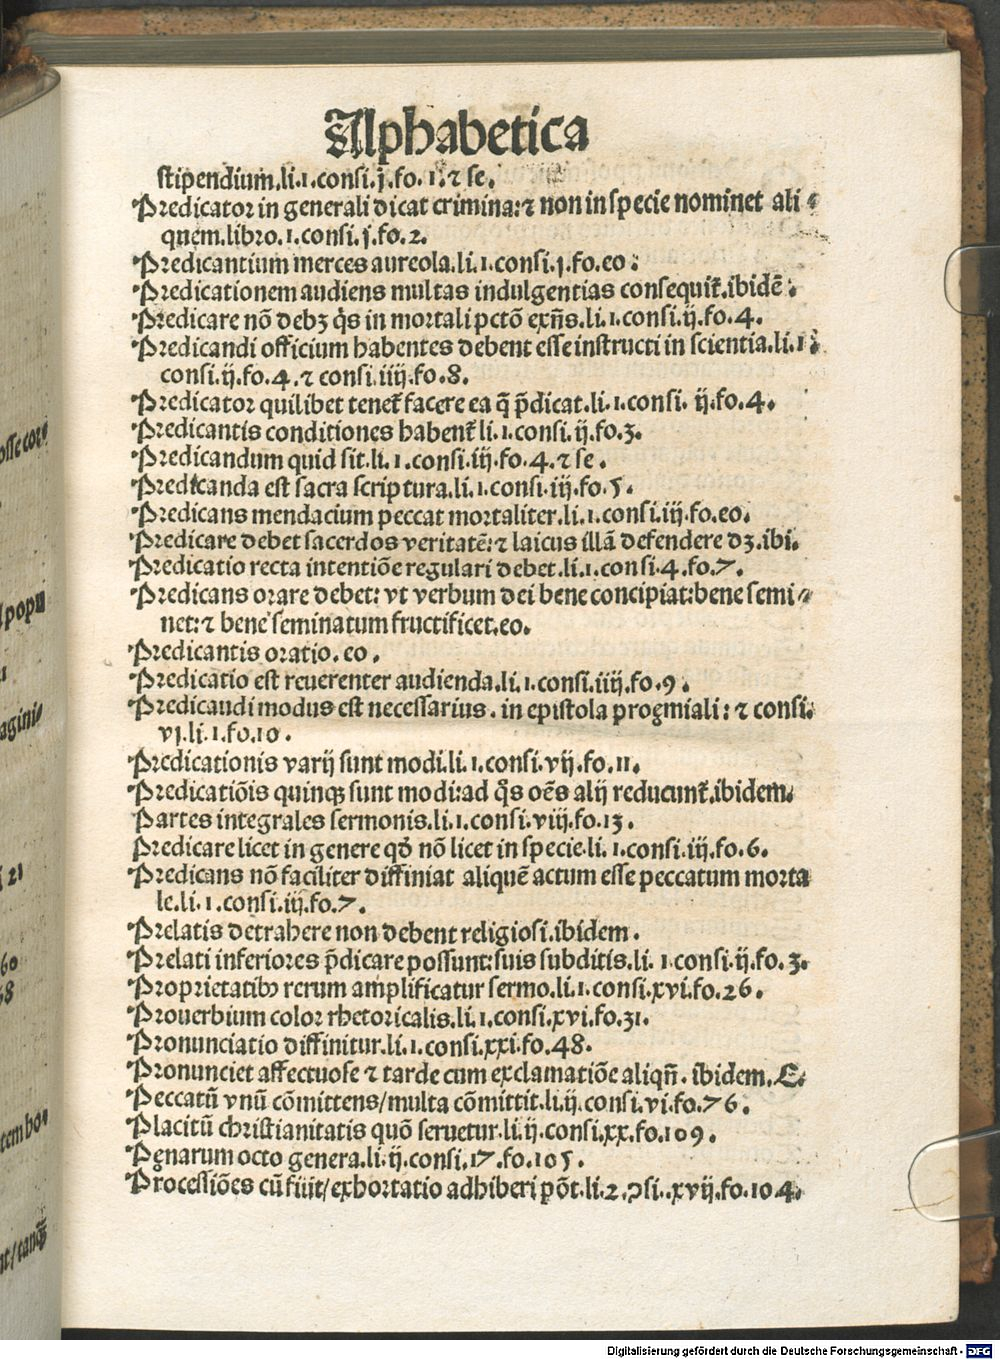 Alphabetica
stipendium.li.1.consi.j.fo.1.⁊ se.
Predicator in generali dicat crimina:⁊ non in specie nominet ali⸗
quem.libro.1.consi.j.fo.2.
Predicantium merces aureola.li.1.consi.j.fo.eo.
Predicationem audiens multas indulgentias consequit᷑.ibidē.
Predicare nō debꝫ q̇s in mortali pctō exn̄s.li.1.consi.ij.fo.4.
Predicandi officium habentes debent esse instructi in scientia.li.1.
consi.ij.fo.4.⁊ consi.iiij.fo.8.
Predicator quilibet tenet᷑ facere ea q̄ p̄dicat.li.1.consi.ij.fo.4.
Predicantis conditiones habent᷑ li.1.consi.ij.fo.3.
Predicandum quid sit.li.1.consi.iij.fo.4.⁊ se.
Predicanda est sacra scriptura.li.1.consi.iij.fo.5.
Predicans mendacium peccat mortaliter.li.1.consi.iij.fo.eo.
Predicare debet sacerdos veritatē:⁊ laicus illā defendere dꝫ.ibi.
Predicatio recta intentiōe regulari debet.li.1.consi.4.fo.7.
Predicans orare debet: vt verbum dei bene concipiat:bene semi⸗
net:⁊ bene seminatum fructificet.eo.
Predicantis oratio.eo.
Predicatio est reuerenter audienda.li.1.consi.iiij.fo.9.
Predicandi modus est necessarius.in epistola progmiali:⁊ consi.
vj.li.1.fo.10.
Predicationis varij sunt modi.li.1.consi.vij.fo.11.
Predicatiōis quinqꝫ sunt modi:ad q̊s oēs alij reducunt᷑.ibidem.
Partes integrales sermonis.li.1.consi.viij.fo.13.
Predicare licet in genere qđ nō licet in specie.li.1.consi.iij.fo.6.
Predicans nō faciliter diffiniat aliquē actum esse peccatum morta
le.li.1.consi.iij.fo.7.
Prelatis detrahere non debent religiosi.ibidem.
Prelati inferiores p̄dicare possunt:suis subditis.li.1.consi.ij.fo.3.
Proprietatibꝫ rerum amplificatur sermo.li.1.consi.xvi.fo.26.
Prouerbium color rhetoricalis.li.1.consi.xvi.fo.31.
Pronunciatio diffinitur.li.1.consi.xxi.fo.48.
Pronunciet affectuose ⁊ tarde cum exclamatiōe aliqn̄.ibidem.
Peccatū vnū cōmittens/multa cōmittit.li.ij.consi.vi.fo.76.
Placitū christianitatis quō seruetur.li.ij.consi.xx.fo.109.
Pęnarum octo genera.li.ij.consi.17.fo.105.
Processiōes cū fiūt/exhortatio adhiberi pōt.li.2.ꝯsi.xvij.fo.104.
osse cor⸗
popu
agini⸗
21
60
8
tem bo⸗
nt/tanqꝫ
Digitalisierung gefördert durch die Deutsche Forschungsgemeinschaft - DFG